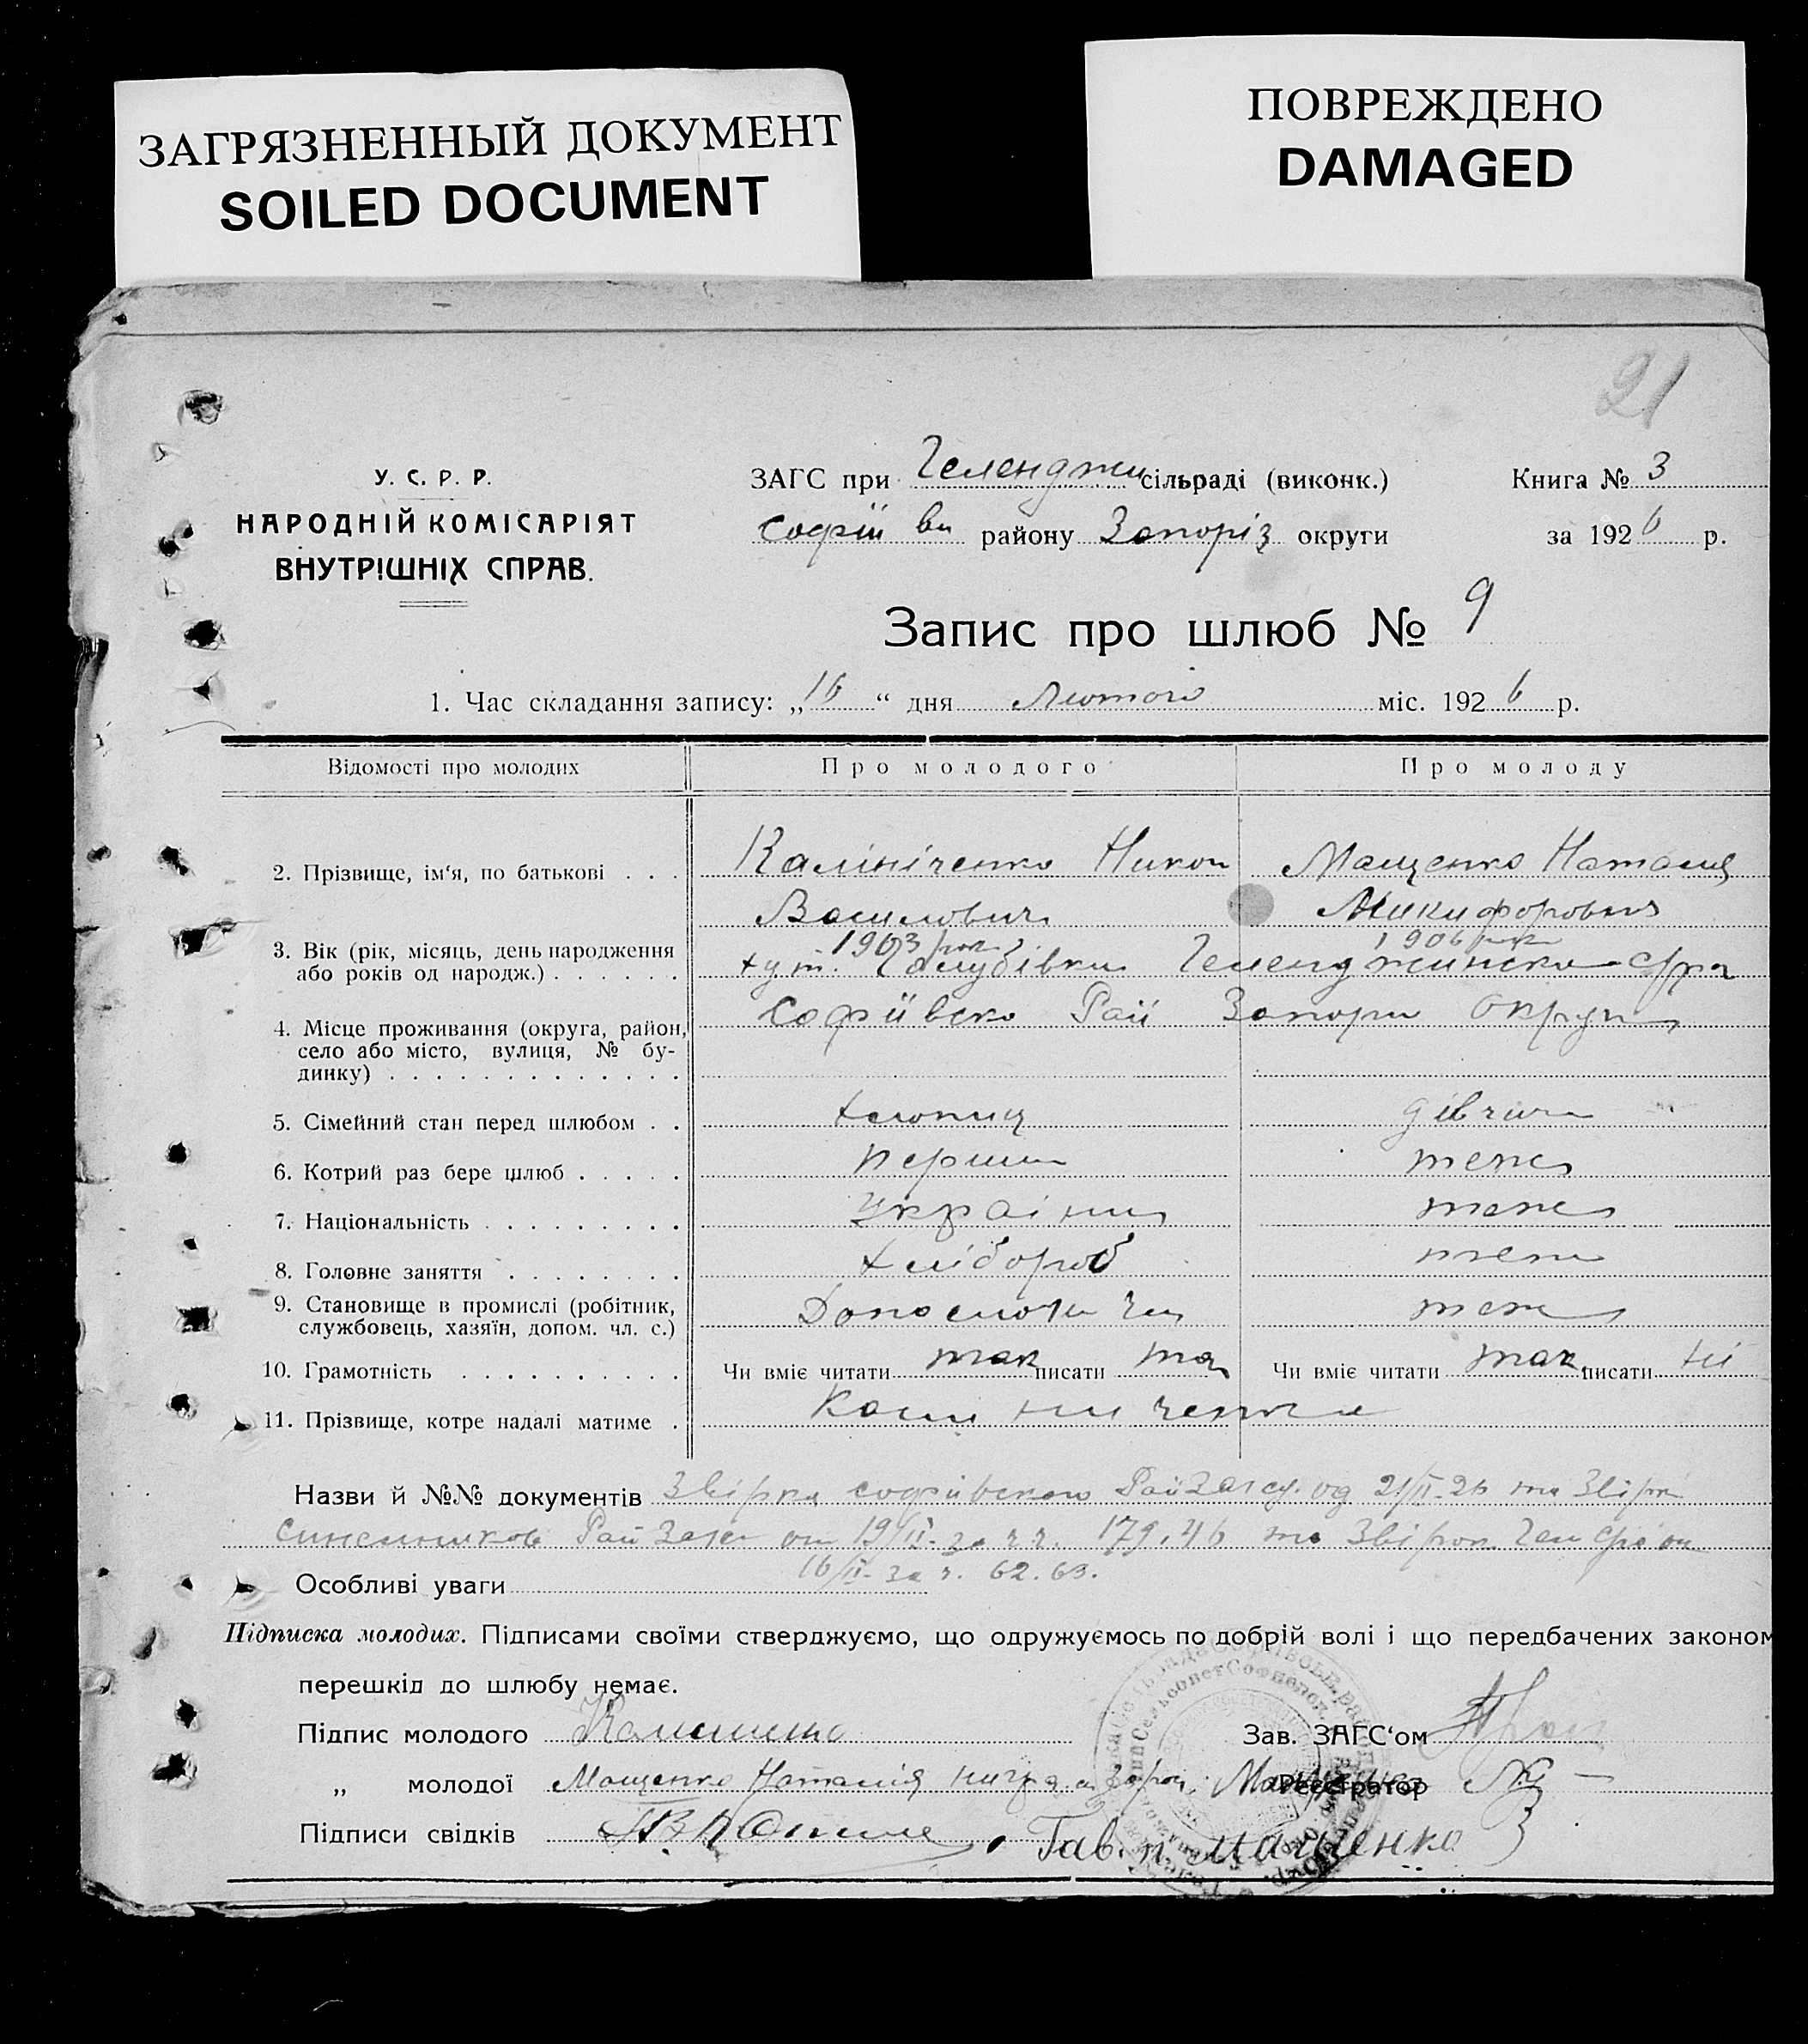 ЗАГРЯЗНЕННЫЙ ДОКУМЕНТ
SOILED DOCUMENT
ПОВРЕЖДЕНО
DAMAGED
21
У. С. Р. Р.
НАРОДНІЙ КОМІСАРІЯТ
ВНУТРІШНІХ СПРАВ.
ЗАГС при Геленджи сільраді (виконк.)
Софіїв району Запоріз округи
Книга № 3
за 1926 р.
Запис про шлюб № 9
1. Час складання запису: „16“ дня Лютого міс. 1926 р.
Відомості про молодих Про молодого Про молоду
2. Прізвище, ім‘я, по батькові . . . Калініченко Никон Мащенко Наталия
Василович Микифоровна
3. Вік (рік, місяць, день народження 1903 рок 1906 рок
або років од народж.) . . . . . . хут. Голубівки
4. Місце проживання (округа, район, Софіївско Рай Запори Округи
село або місто, вулиця, № бу-
динку) . . . . . . . . . . . . .
5. Сімейний стан перед шлюбом . . хлопиц дівчина
6. Котрий раз бере шлюб . . . . . перший теж
7. Національність . . . . . . . . . україниц теж
8. Головне заняття . . . . . . . . хлібороб теж
9. Становище в промислі (робітник, теж
службовець, хазяїн, допом. чл. с.)
10. Грамотність . . . . . . . . . . Чи вміє читати так писати та Чи вміє читати так писати ні
11. Прізвище, котре надалі матиме .
Назви й №№ документів Звірка софиівского РайЗагсу од 21/II-26 та Звірк
РайЗагс от 19/II- за чч. 179.46 та Звірок
16/II- за ч. 62.63.
Особливі уваги
Підписка молодих. Підписами своїми стверджуємо, що одружуємось по добрій волі і що передбачених законом
перешкід до шлюбу немає.
Підпис молодого
Зав. ЗАГС‘ом
„ молодої Мащенко Наталія
Реєстратор
Підписи свідків Гав. п. Мащенко